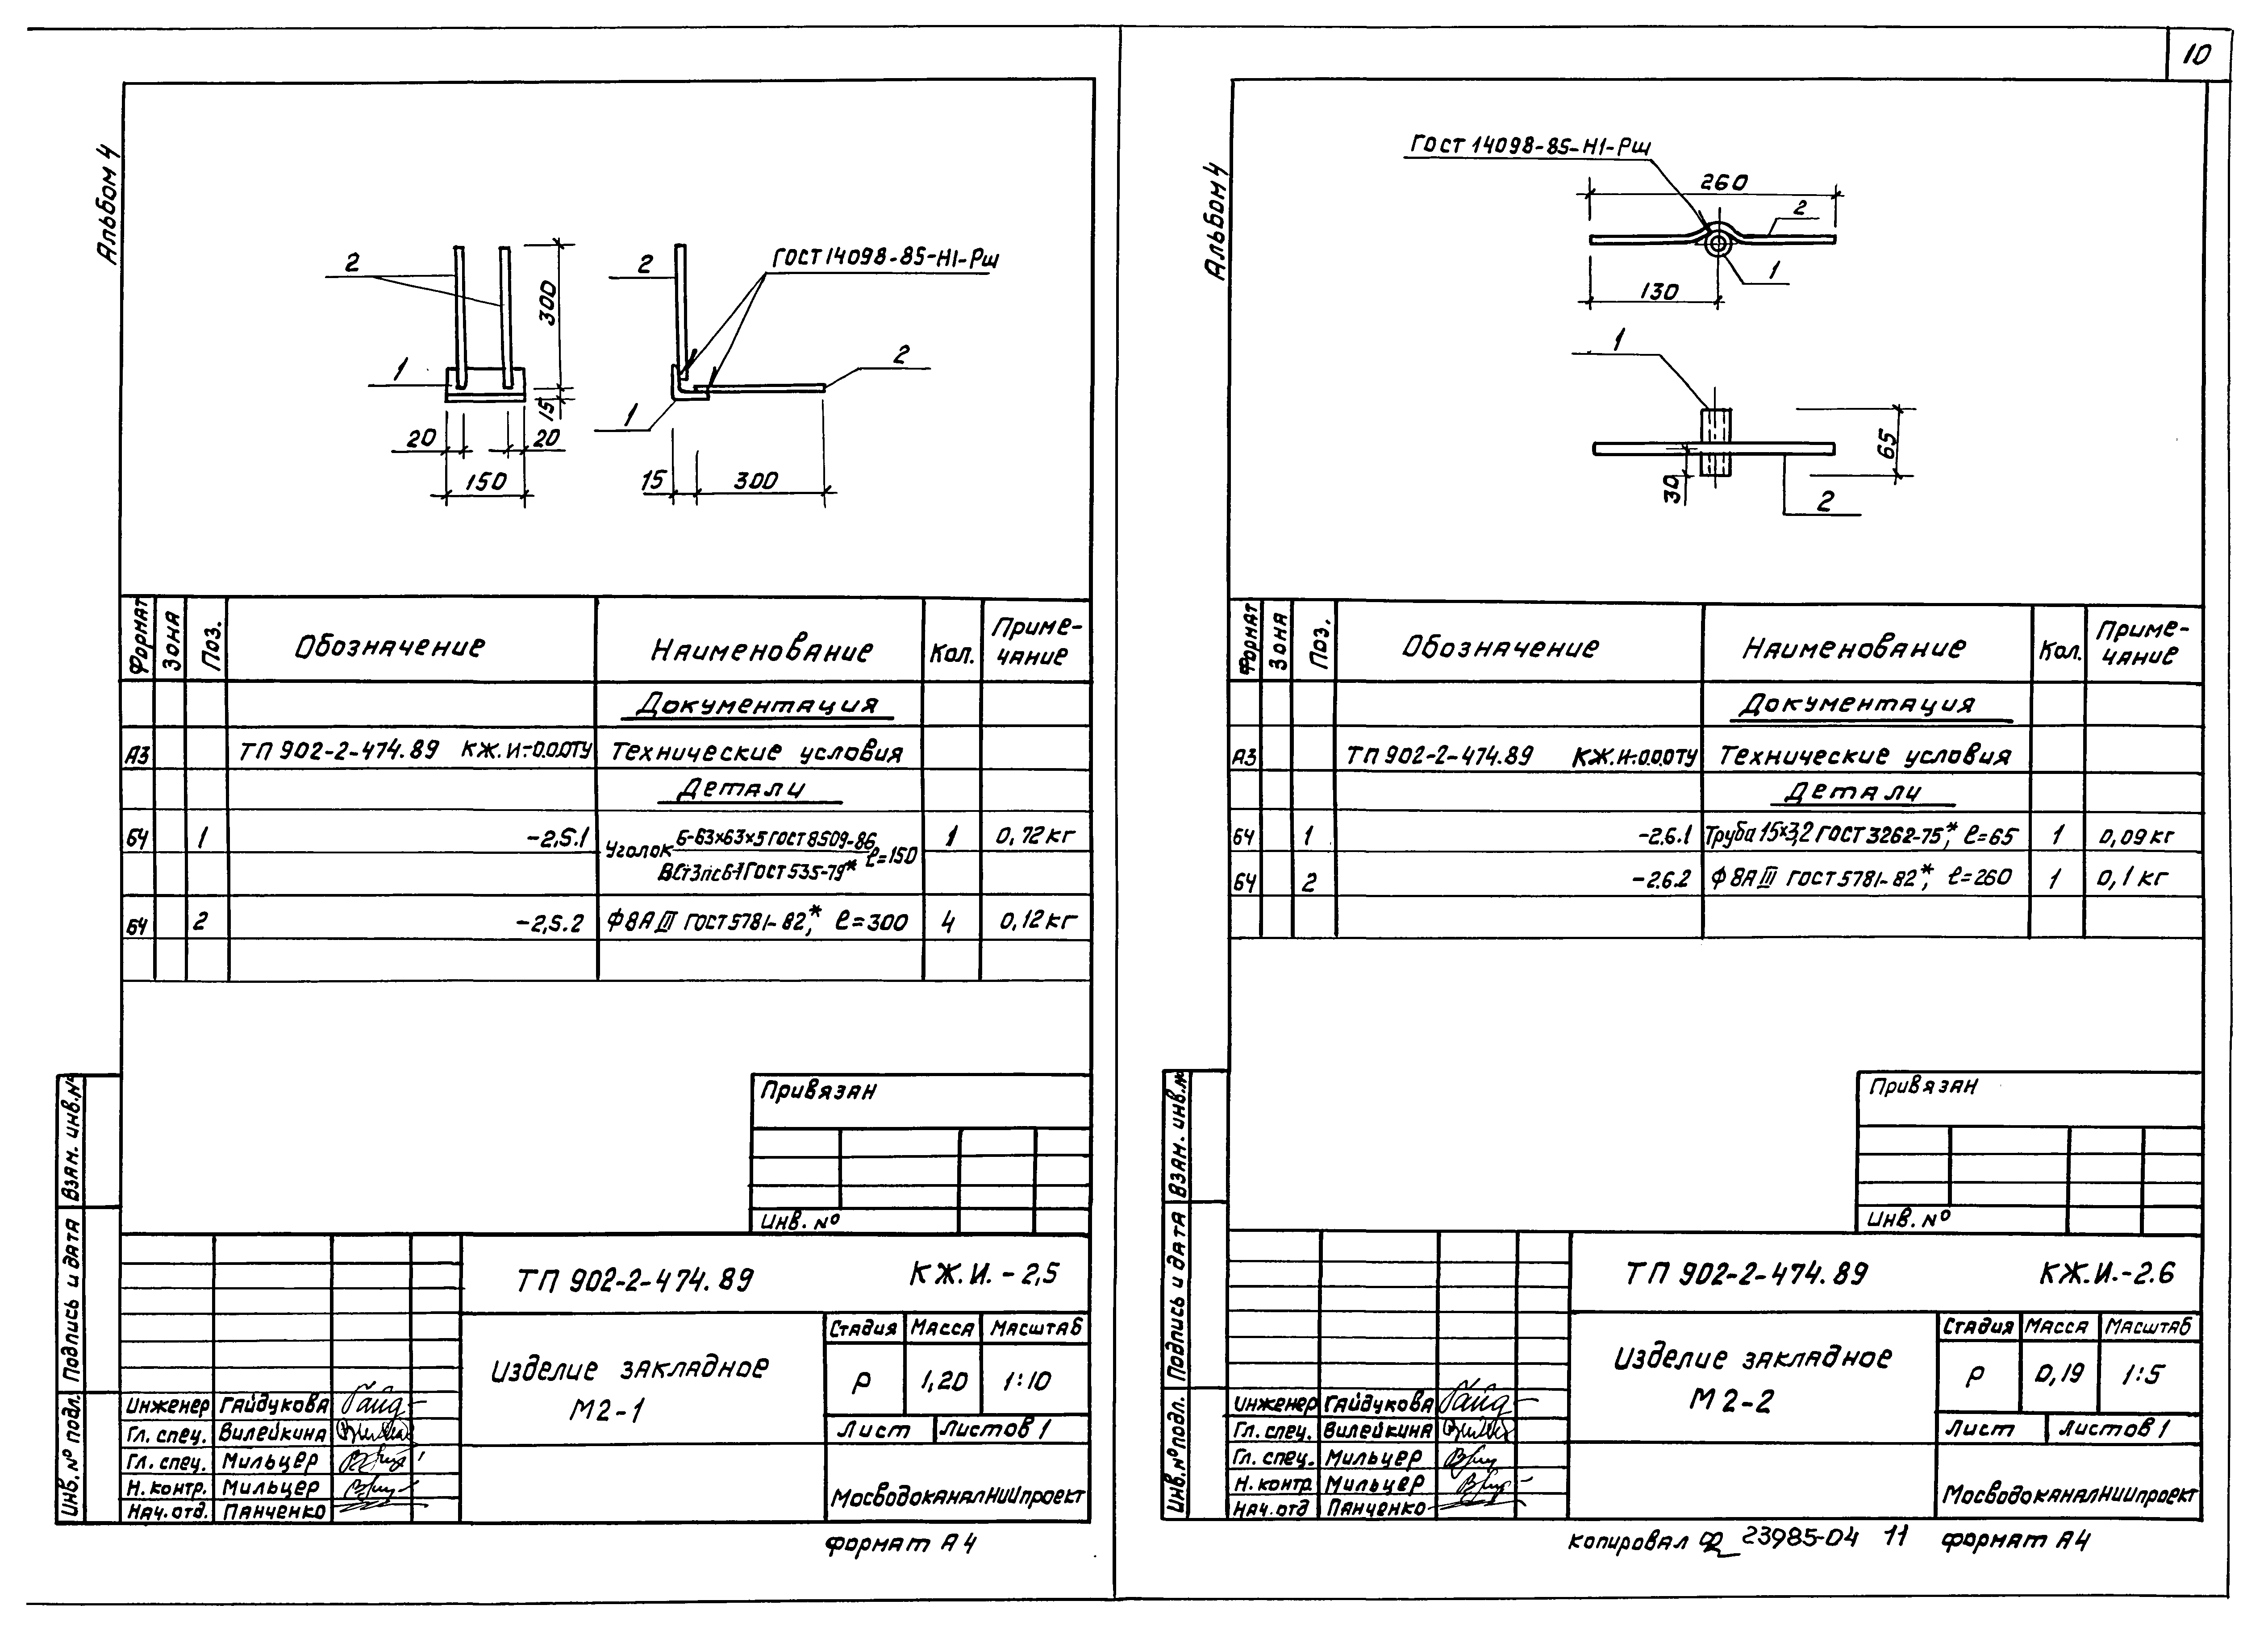 10
Альбом 4
2
300
1
15
20
20
150
2
ГОСТ 14098-85-Н1-Рш
2
1
15
300
Формат
Зона
Поз.
Обозначение
Наименование
Кол.
Приме-
чание
Документация
А3 ТП 902-2-474.89 КЖ.И.-0.0.0ТУ Технические условия
Детали
БЧ 1 -2,5.1 Уголок Б-63х63х5 ГОСТ 8509-86 1 0,72 кг
ВСт3пс6-1 ГОСТ 535-79* ℓ=150
БЧ 2 -2,5.2 Ф8АIII ГОСТ 5781-82*, ℓ=300 4 0,12 кг
Привязан
Инв. №
Взам. инв. №
Подпись и дата
Инв. № подл.
ТП 902-2-474.89 КЖ.И. - 2,5
Изделие закладное
М2-1
Стадия Масса Масштаб
Р 1,20 1:10
Лист Листов 1
МосводоканалНИИпроект
Инженер Гайдукова
Гл. спец. Вилейкина
Гл. спец. Мильцер
Н. контр. Мильцер
Нач. отд. Панченко
Формат А4
Альбом 4
ГОСТ 14098-85-Н1-Рш
260
2
1
130
1
65
30
2
Формат
Зона
Поз.
Обозначение
Наименование
Кол.
Приме-
чание
Документация
А3 ТП 902-2-474.89 КЖ.И-0.0.0ТУ Технические условия
Детали
БЧ 1 -2.6.1 Труба 15х3,2 ГОСТ 3262-75*, ℓ=65 1 0,09 кг
БЧ 2 -2.6.2 Ф8АIII ГОСТ 5781-82*, ℓ=260 1 0,1 кг
Привязан
Инв. №
Взам. инв. №
Подпись и дата
Инв. № подл.
ТП 902-2-474.89 КЖ.И.-2.6
Изделие закладное
М2-2
Стадия Масса Масштаб
Р 0,19 1:5
Лист Листов 1
МосводоканалНИИпроект
Инженер Гайдукова
Гл. спец. Вилейкина
Гл. спец. Мильцер
Н. контр Мильцер
Нач. отд Панченко
Копировал 23985-04 11 Формат А4